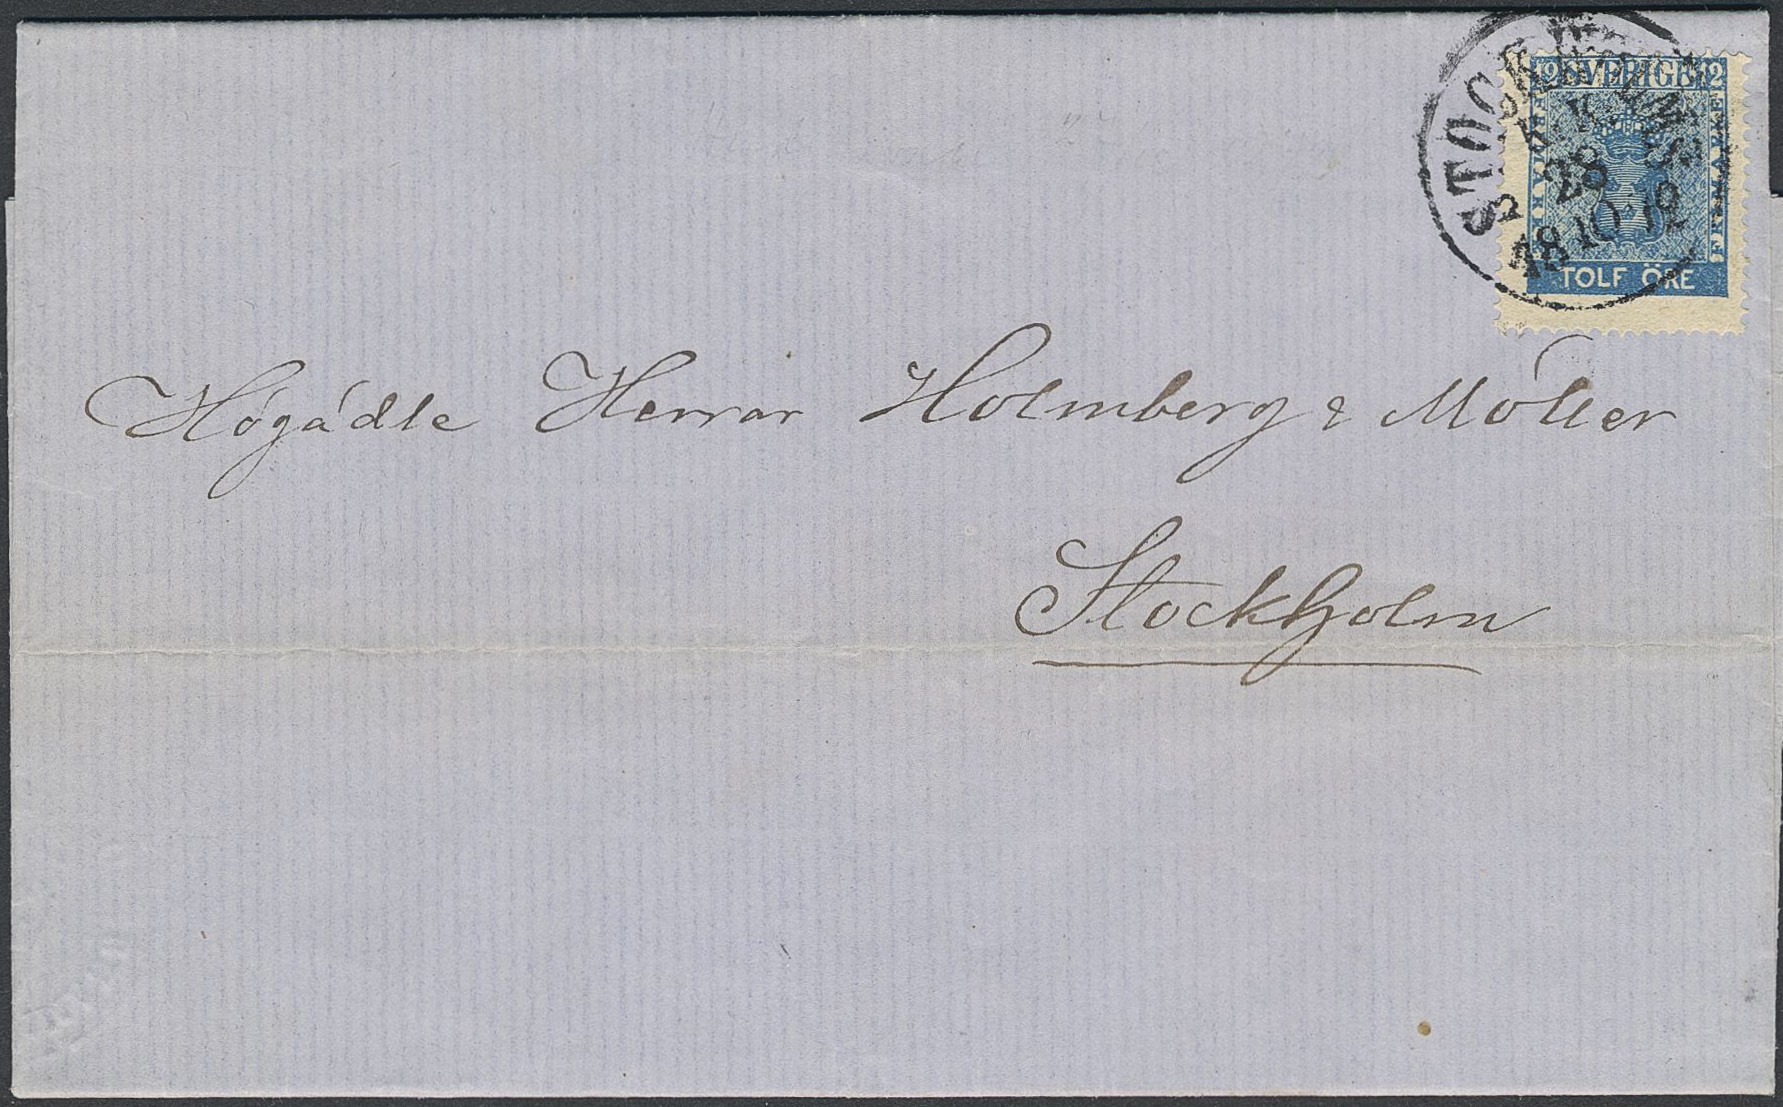 12 SVERIGE 12
FRIMÄRKE
TOLF ÖRE
STOCKHOLM
28
18 10 72
Högädle Herrar Holmberg & Möller
Stockholm